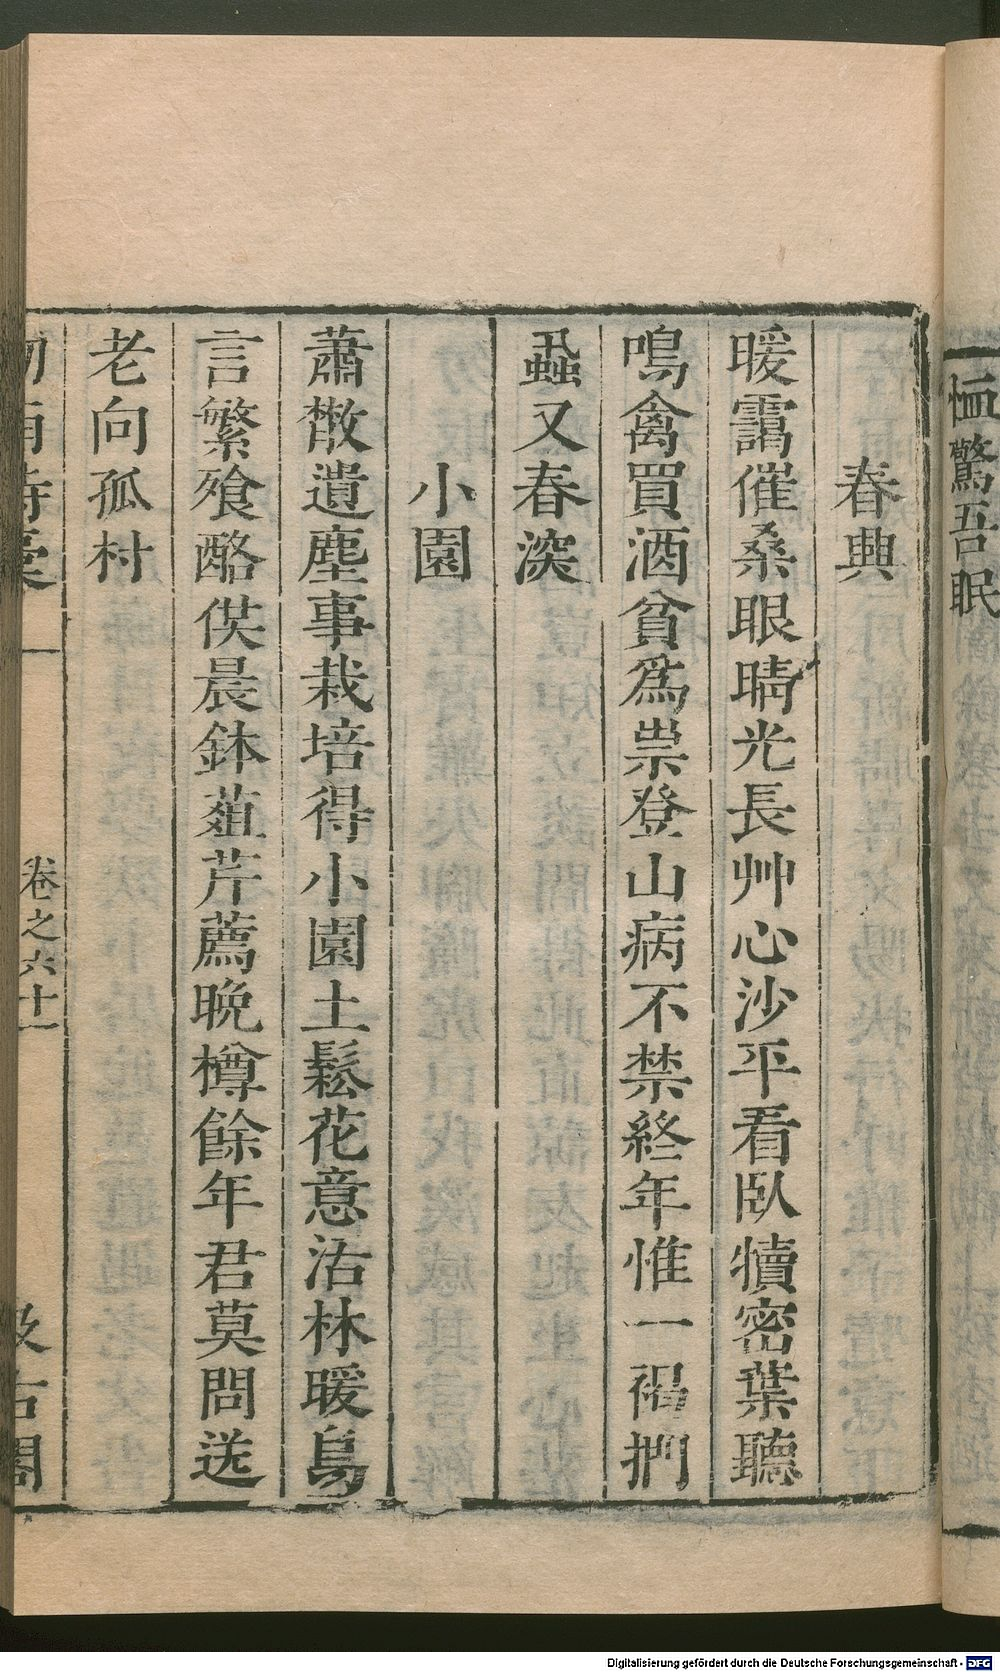 恤驚吾眠
春興
暖靄催桑眼晴光長艸心沙平看臥犢密葉聽
鳴禽買酒貧為祟登山病不禁終年惟一褐捫
蝨又春深
小園
蕭散遺塵事栽培得小園土鬆花意活林暖鳥
言繁飱酪供晨鉢葅芹薦晚樽餘年君莫問送
老向孤村
卷之六十一
汲古閣
Digitalisierung gefördert durch die Deutsche Forschungsgemeinschaft - DFG